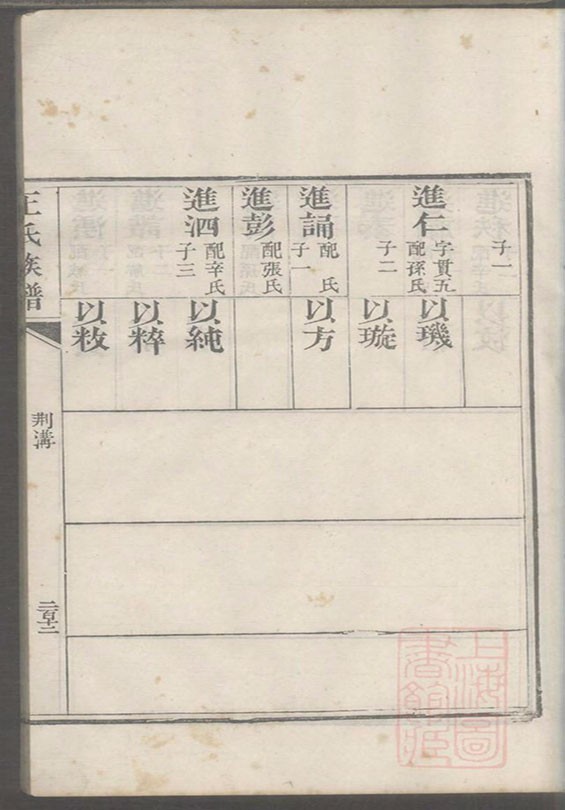 子一
進仁 字貫五 配孫氏
子二
進誦 配 氏 子一
進彭 配張氏
進泗 配辛氏 子三
以璣
以璇
以方
以純
以粹
以敉
王氏族譜
荆溝
二百十二
上海圖書館藏